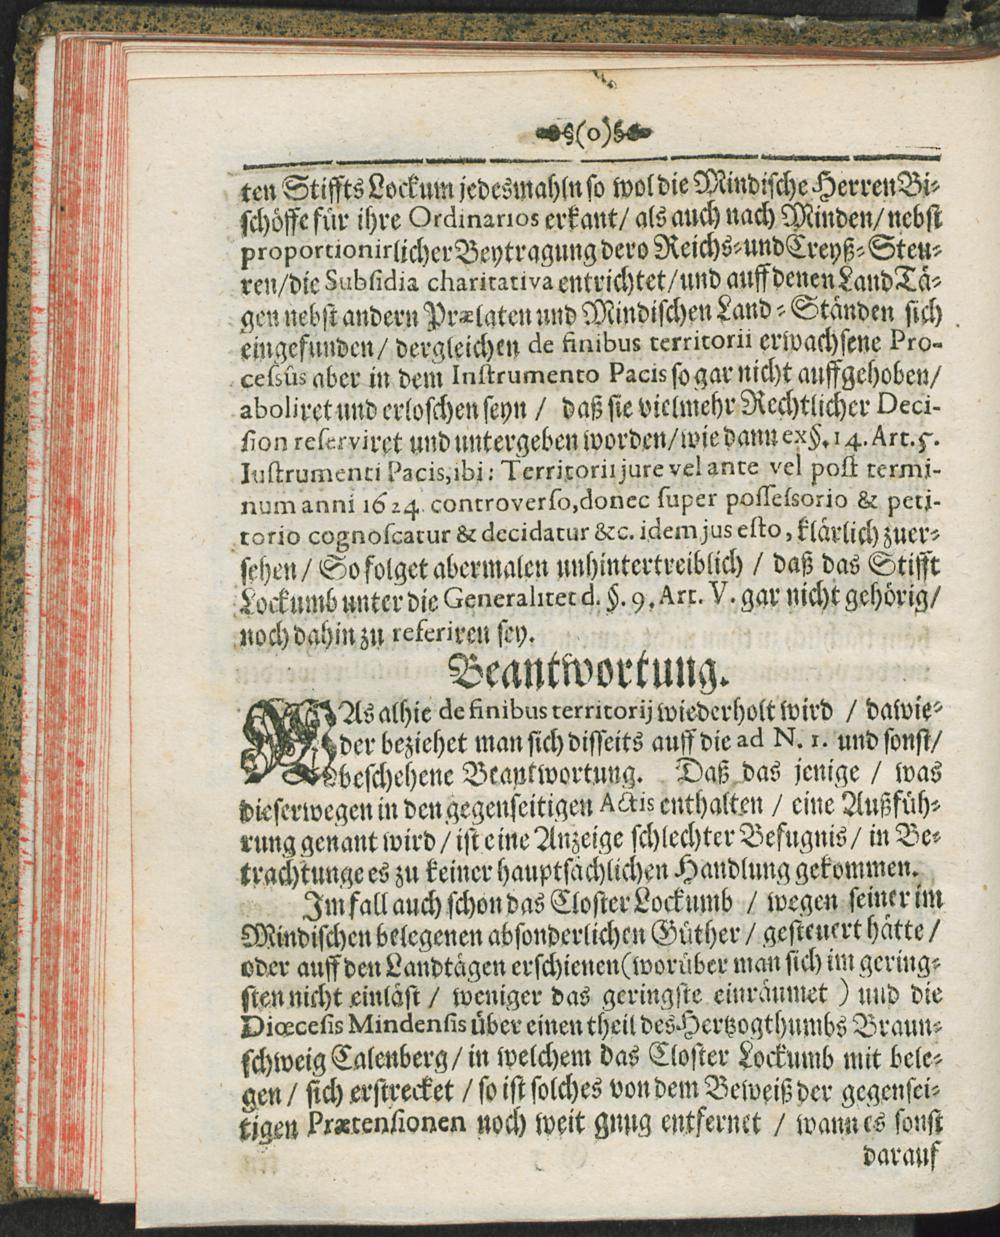 §(0)§
ten Stiffts Lockum jedesmahln so wol die Mindische Herren Bi-
schöffe für ihre Ordinarios erkant/ als auch nach Minden/ nebst
proportionirlicher Beytragung dero Reichs- und Creyß-Steu-
ren/ die Subsidia charitativa entrichtet/ und auff denen Land Tä-
gen nebst andern Prælaten und Mindischen Land-Ständen sich
eingefunden/ dergleichen de finibus territorii erwachsene Pro-
cessûs aber in dem Instrumento Pacis so gar nicht auffgehoben/
aboliret und erloschen seyn / daß sie vielmehr Rechtlicher Deci-
sion reserviret und untergeben worden/ wie dann ex §. 14. Art. 5.
Iustrumenti Pacis, ibi: Territorii jure vel ante vel post termi-
num anni 1624. controverso, donec super possessorio & peti-
torio cognoscatur & decidatur &c. idem jus esto, klärlich zuer-
sehen/ So folget abermalen unhintertreiblich / daß das Stifft
Lockumb unter die Generalitet d. §. 9. Art. V. gar nicht gehörig/
noch dahin zu referiren sey.
Beantwortung.
WAs alhie de finibus territorij wiederholt wird / dawie-
der beziehet man sich disseits auff die ad N. 1. und sonst/
beschehene Beantwortung. Daß das jenige / was
dieserwegen in den gegenseitigen Actis enthalten / eine Außfüh-
rung genant wird / ist eine Anzeige schlechter Befugnis/ in Be-
trachtunge es zu keiner hauptsächlichen Handlung gekommen.
Im fall auch schon das Closter Lockumb / wegen seiner im
Mindischen belegenen absonderlichen Güther / gesteuert hätte /
oder auff den Landtägen erschienen (worüber man sich im gering-
sten nicht einläst / weniger das geringste einräumet ) und die
Diœcesis Mindensis über einen theil des Hertzogthumbs Braun-
schweig Calenberg / in welchem das Closter Lockumb mit bele-
gen / sich erstrecket / so ist solches von dem Beweiß der gegensei-
tigen Prætensionen noch weit gnug entfernet / wann es sonst
darauf